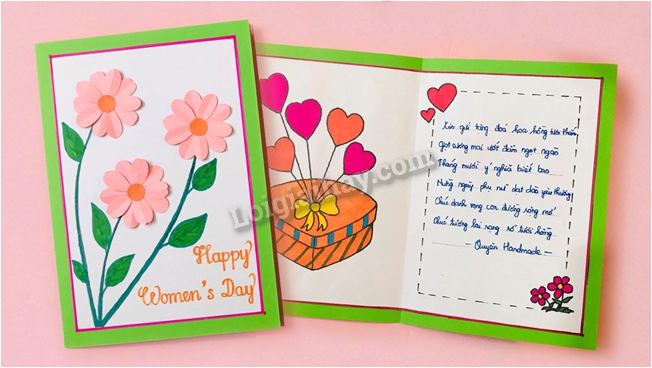 Happy
Women's Day
Loigiaihay.com
Xin gửi từng đoá hoa hồng tươi thắm
Giọt sương mai ướt đẫm ngọt ngào
Tháng mười ý nghĩa biết bao
Mừng ngày phụ nữ dạt dào yêu thương
Chúc danh vọng con đường rộng mở
Chúc tương lai rạng rỡ tươi hồng
- Quyên Handmade -